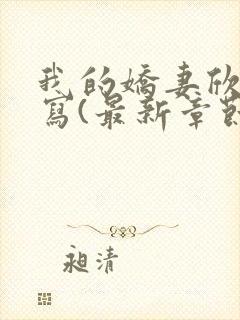 我的嬌妻欣
寫(最新章節
昶清